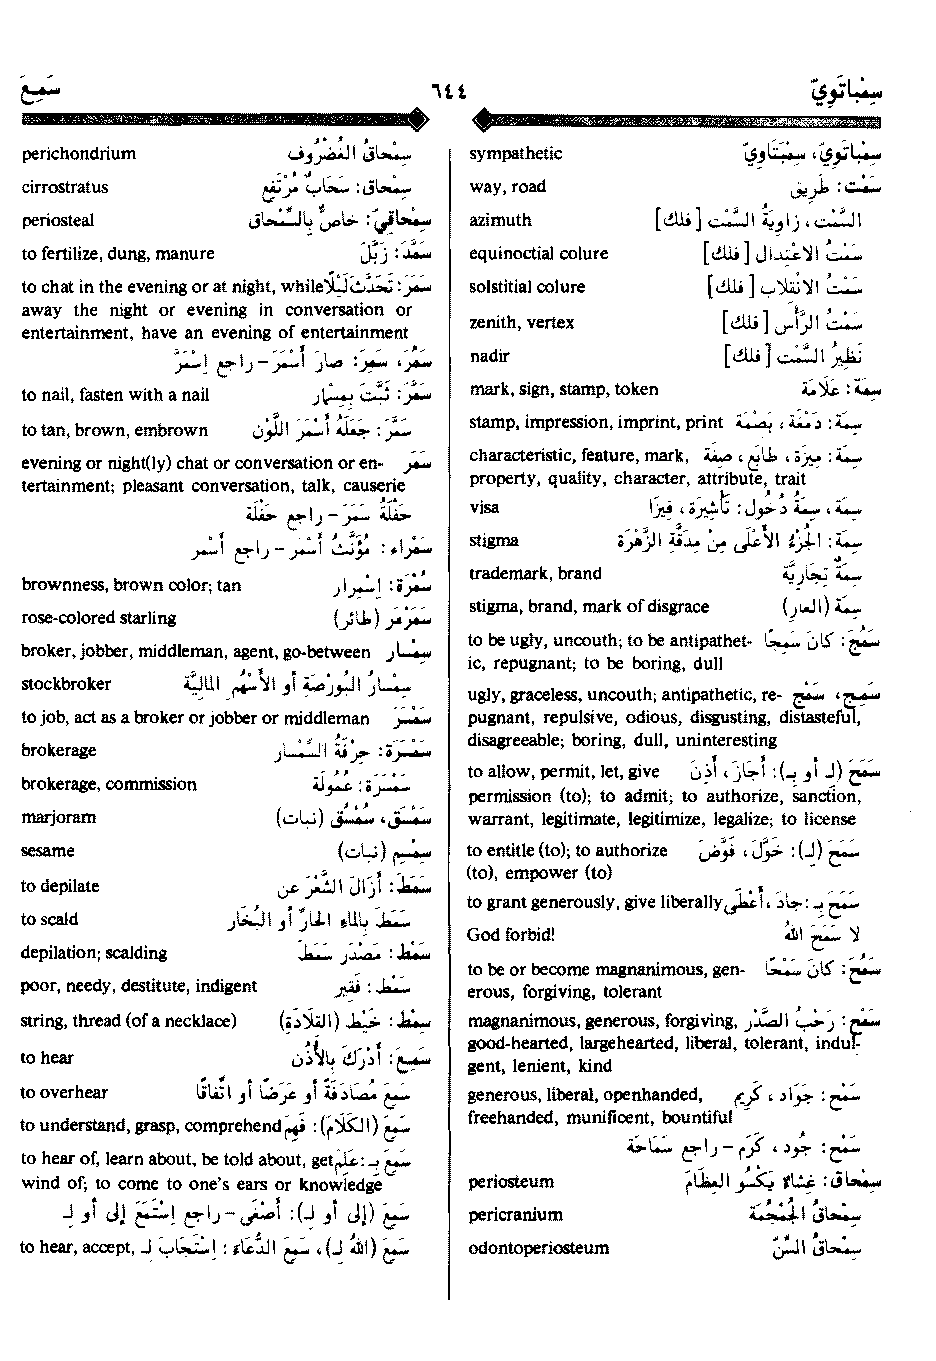 سِمْبَاتَوِيّ
٦٤٤
سَمِعَ
سِمْبَاتَوِيّ، سِمْبَتَاوِيّ sympathetic
سَمْت: طَرِيق way, road
السَّمْت، زَاوِيَةُ السَّمْت [فلك] azimuth
سَمْتُ الاعْتِدَال [فلك] equinoctial colure
سَمْتُ الانْقِلاب [فلك] solstitial colure
سَمْتُ الرَّأْس [فلك] zenith, vertex
نَظِيرُ السَّمْت [فلك] nadir
سِمَة: عَلاَمَة mark, sign, stamp, token
سِمَة: دَمْغَة، بَصْمَة stamp, impression, imprint, print
سِمَة: مِيزَة، طَابَع، صِفَة characteristic, feature, mark,
property, quality, character, attribute, trait
سِمَة، سِمَةُ دُخُول: تَأْشِيرَة، فِيزَا visa
سِمَة: الجُزْءُ الأَعْلَى مِنْ مِدَقَّةِ الزَّهْرَة stigma
سِمَةٌ تِجَارِيَّة trademark, brand
سِمَة (العار) stigma, brand, mark of disgrace
سَمُجَ: كَانَ سَمِجًا to be ugly, uncouth; to be antipathet-
ic, repugnant; to be boring, dull
سَمِيج، سَمْج ugly, graceless, uncouth; antipathetic, re-
pugnant, repulsive, odious, disgusting, distasteful,
disagreeable; boring, dull, uninteresting
سَمَحَ (لِـ أو بِـ): أَجَازَ، أَذِنَ to allow, permit, let, give
permission (to); to admit; to authorize, sanction,
warrant, legitimate, legitimize, legalize; to license
سَمَحَ (لِـ): خَوَّلَ، فَوَّضَ to entitle (to); to authorize
(to), empower (to)
سَمَحَ بِـ: جَادَ، أَعْطَى to grant generously, give liberally
لا سَمَحَ اللهُ God forbid!
سَمُحَ: كَانَ سَمْحًا to be or become magnanimous, gen-
erous, forgiving, tolerant
سَمْح: رَحْبُ الصَّدْر magnanimous, generous, forgiving,
good-hearted, largehearted, liberal, tolerant, indul-
gent, lenient, kind
سَمْح: جَوَاد، كَرِيم generous, liberal, openhanded,
freehanded, munificent, bountiful
سَمْح: جُود، كَرَم - راجع سَمَاحَة
سِمْحَاق: غِشَاءٌ يَكْسُو العِظَامَ periosteum
سِمْحَاقُ الجُمْجُمَة pericranium
سِمْحَاقُ السِّنّ odontoperiosteum
سِمْحَاقُ الغُضْرُوف perichondrium
سِمْحَاق: سَحَابٌ مُرْتَفِع cirrostratus
سِمْحَاقِيّ: خَاصٌّ بِالسِّمْحَاق periosteal
سَمَّدَ: زَبَّلَ to fertilize, dung, manure
سَمَرَ: تَحَدَّثَ لَيْلاً to chat in the evening or at night, while
away the night or evening in conversation or
entertainment, have an evening of entertainment
سَمُرَ، سَمِرَ: صَارَ أَسْمَرَ - راجع إِسْمَرَّ
سَمَّرَ: ثَبَّتَ بِمِسْمَار to nail, fasten with a nail
سَمَّرَ: جَعَلَهُ أَسْمَرَ اللَّوْن to tan, brown, embrown
سَمَر evening or night(ly) chat or conversation or en-
tertainment; pleasant conversation, talk, causerie
حَفْلَةُ سَمَر - راجع حَفْلَة
سَمْرَاء: مُؤَنَّثُ أَسْمَر - راجع أَسْمَر
سُمْرَة: إِسْمِرَار brownness, brown color; tan
سَمَرْمَر (طائر) rose-colored starling
سِمْسَار broker, jobber, middleman, agent, go-between
سِمْسَارُ البُورْصَة أو الأَسْهُمِ المَالِيَّة stockbroker
سَمْسَرَ to job, act as a broker or jobber or middleman
سَمْسَرَة: حِرْفَةُ السِّمْسَار brokerage
سَمْسَرَة: عُمُولَة brokerage, commission
سَمْسَق، سُمْسُق (نبات) marjoram
سِمْسِم (نبات) sesame
سَمَطَ: أَزَالَ الشَّعْرَ عن to depilate
سَمَطَ بِالماءِ الحَارِّ أو البُخَار to scald
سَمْط: مَصْدَر سَمَطَ depilation; scalding
سَمْط: فَقِير poor, needy, destitute, indigent
سِمْط: خَيْط (القِلاَدَة) string, thread (of a necklace)
سَمِعَ: أَدْرَكَ بِالأُذُن to hear
سَمِعَ مُصَادَفَةً أو عَرَضًا أو اتِّفَاقًا to overhear
سَمِعَ (الكَلاَمَ): فَهِمَ to understand, grasp, comprehend
سَمِعَ بِـ: عَلِمَ to hear of, learn about, be told about, get
wind of; to come to one's ears or knowledge
سَمِعَ (إلى أو لِـ): أَصْغَى - راجع إِسْتَمَعَ إلى أو لِـ
سَمِعَ (اللهُ لِـ)، سَمِعَ الدُّعَاءَ: إِسْتَجَابَ لِـ to hear, accept,